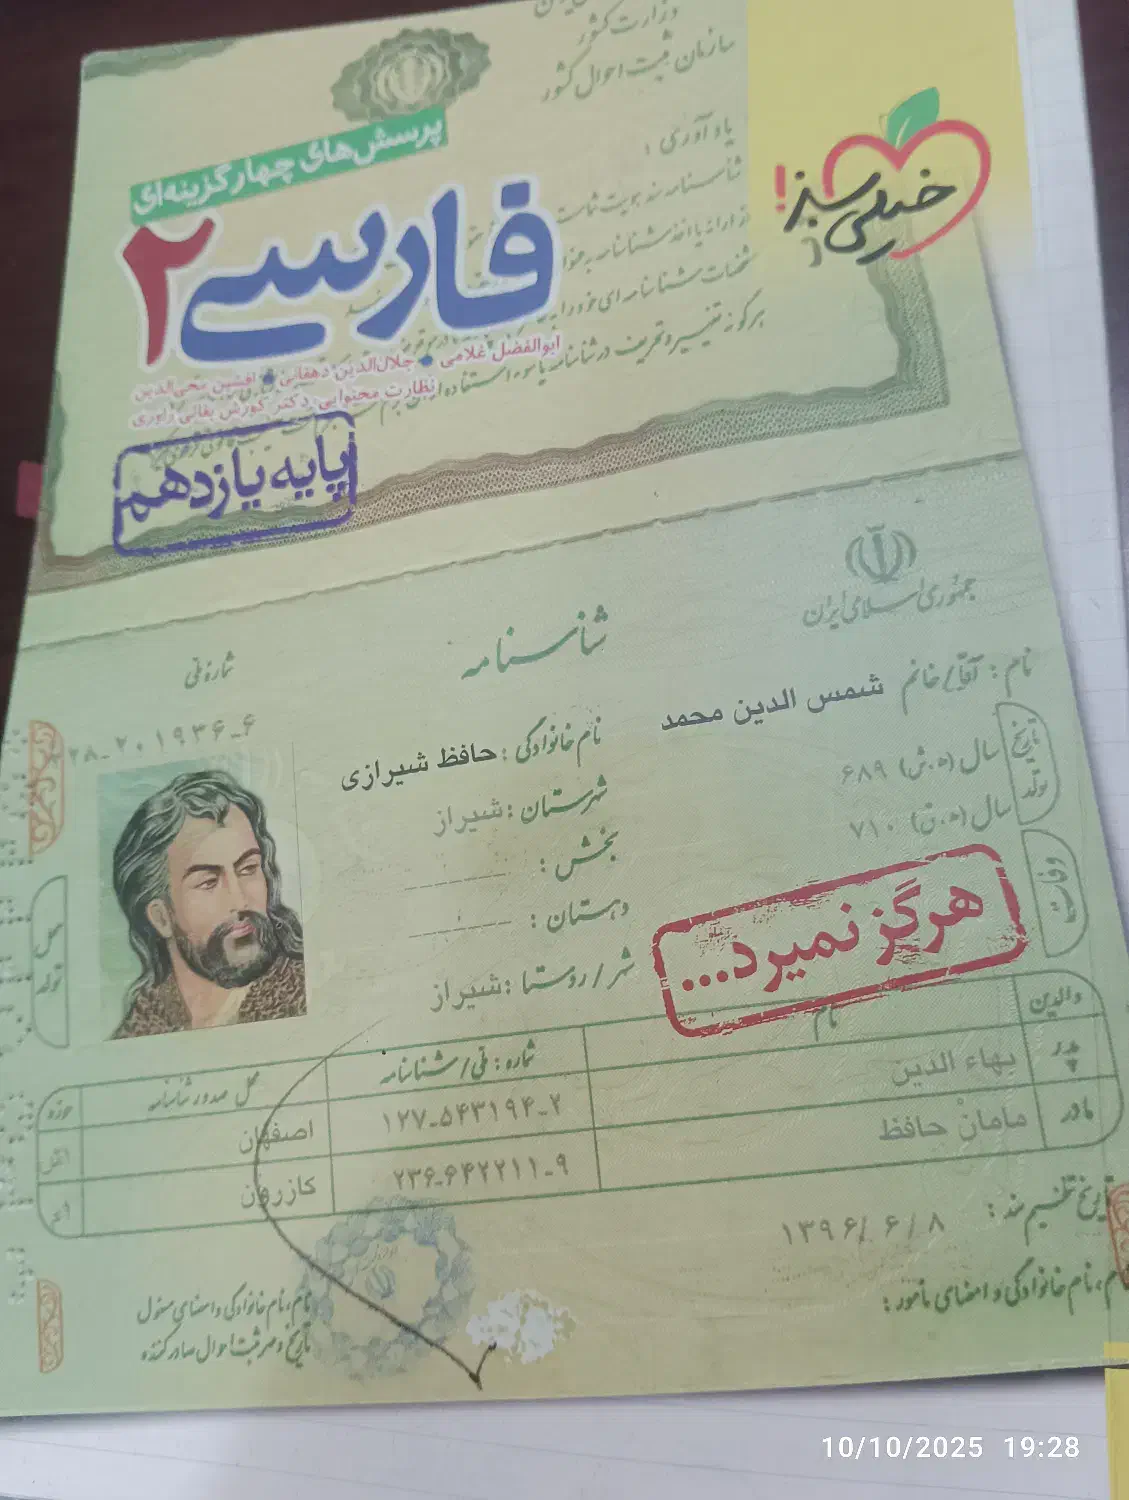 وزارت کشور
سازمان ثبت احوال کشور
خیلی سبز!
پرسش‌های چهارگزینه‌ای
فارسی ۲
یادآوری :
شناسنامه سند هویت شماست
ابوالفضل غلامی • جلال‌الدین دهقانی • افشین محی‌الدین
نظارت محتوایی: دکتر کورش بقائی راوری
پایه یازدهم
جمهوری اسلامی ایران
شناسنامه
شماره ملی
نام : آقا/خانم شمس الدین محمد
نام خانوادگی : حافظ شیرازی
تاریخ تولد
سال (ه.ش) ۶۸۹
سال (ه.ق) ۷۱۰
شهرستان : شیراز
بخش :
دهستان :
شهر / روستا : شیراز
وفات
هرگز نمیرد...
محل تولد
والدین
نام
شماره : ملی / شناسنامه
محل صدور شناسنامه
حوزه
پدر
بهاء الدین
۱۲۷-۵۴۳۱۹۴-۲
اصفهان
مادر
مامانْ حافظ
۲۳۶-۶۴۲۲۱۱-۹
کازرون
تاریخ تنظیم سند : ۱۳۹۶/۶/۸
نام، نام خانوادگی و امضای مامور :
نام، نام خانوادگی و امضای مسئول
تاریخ و مهر ثبت احوال صادرکننده
10/10/2025 19:28